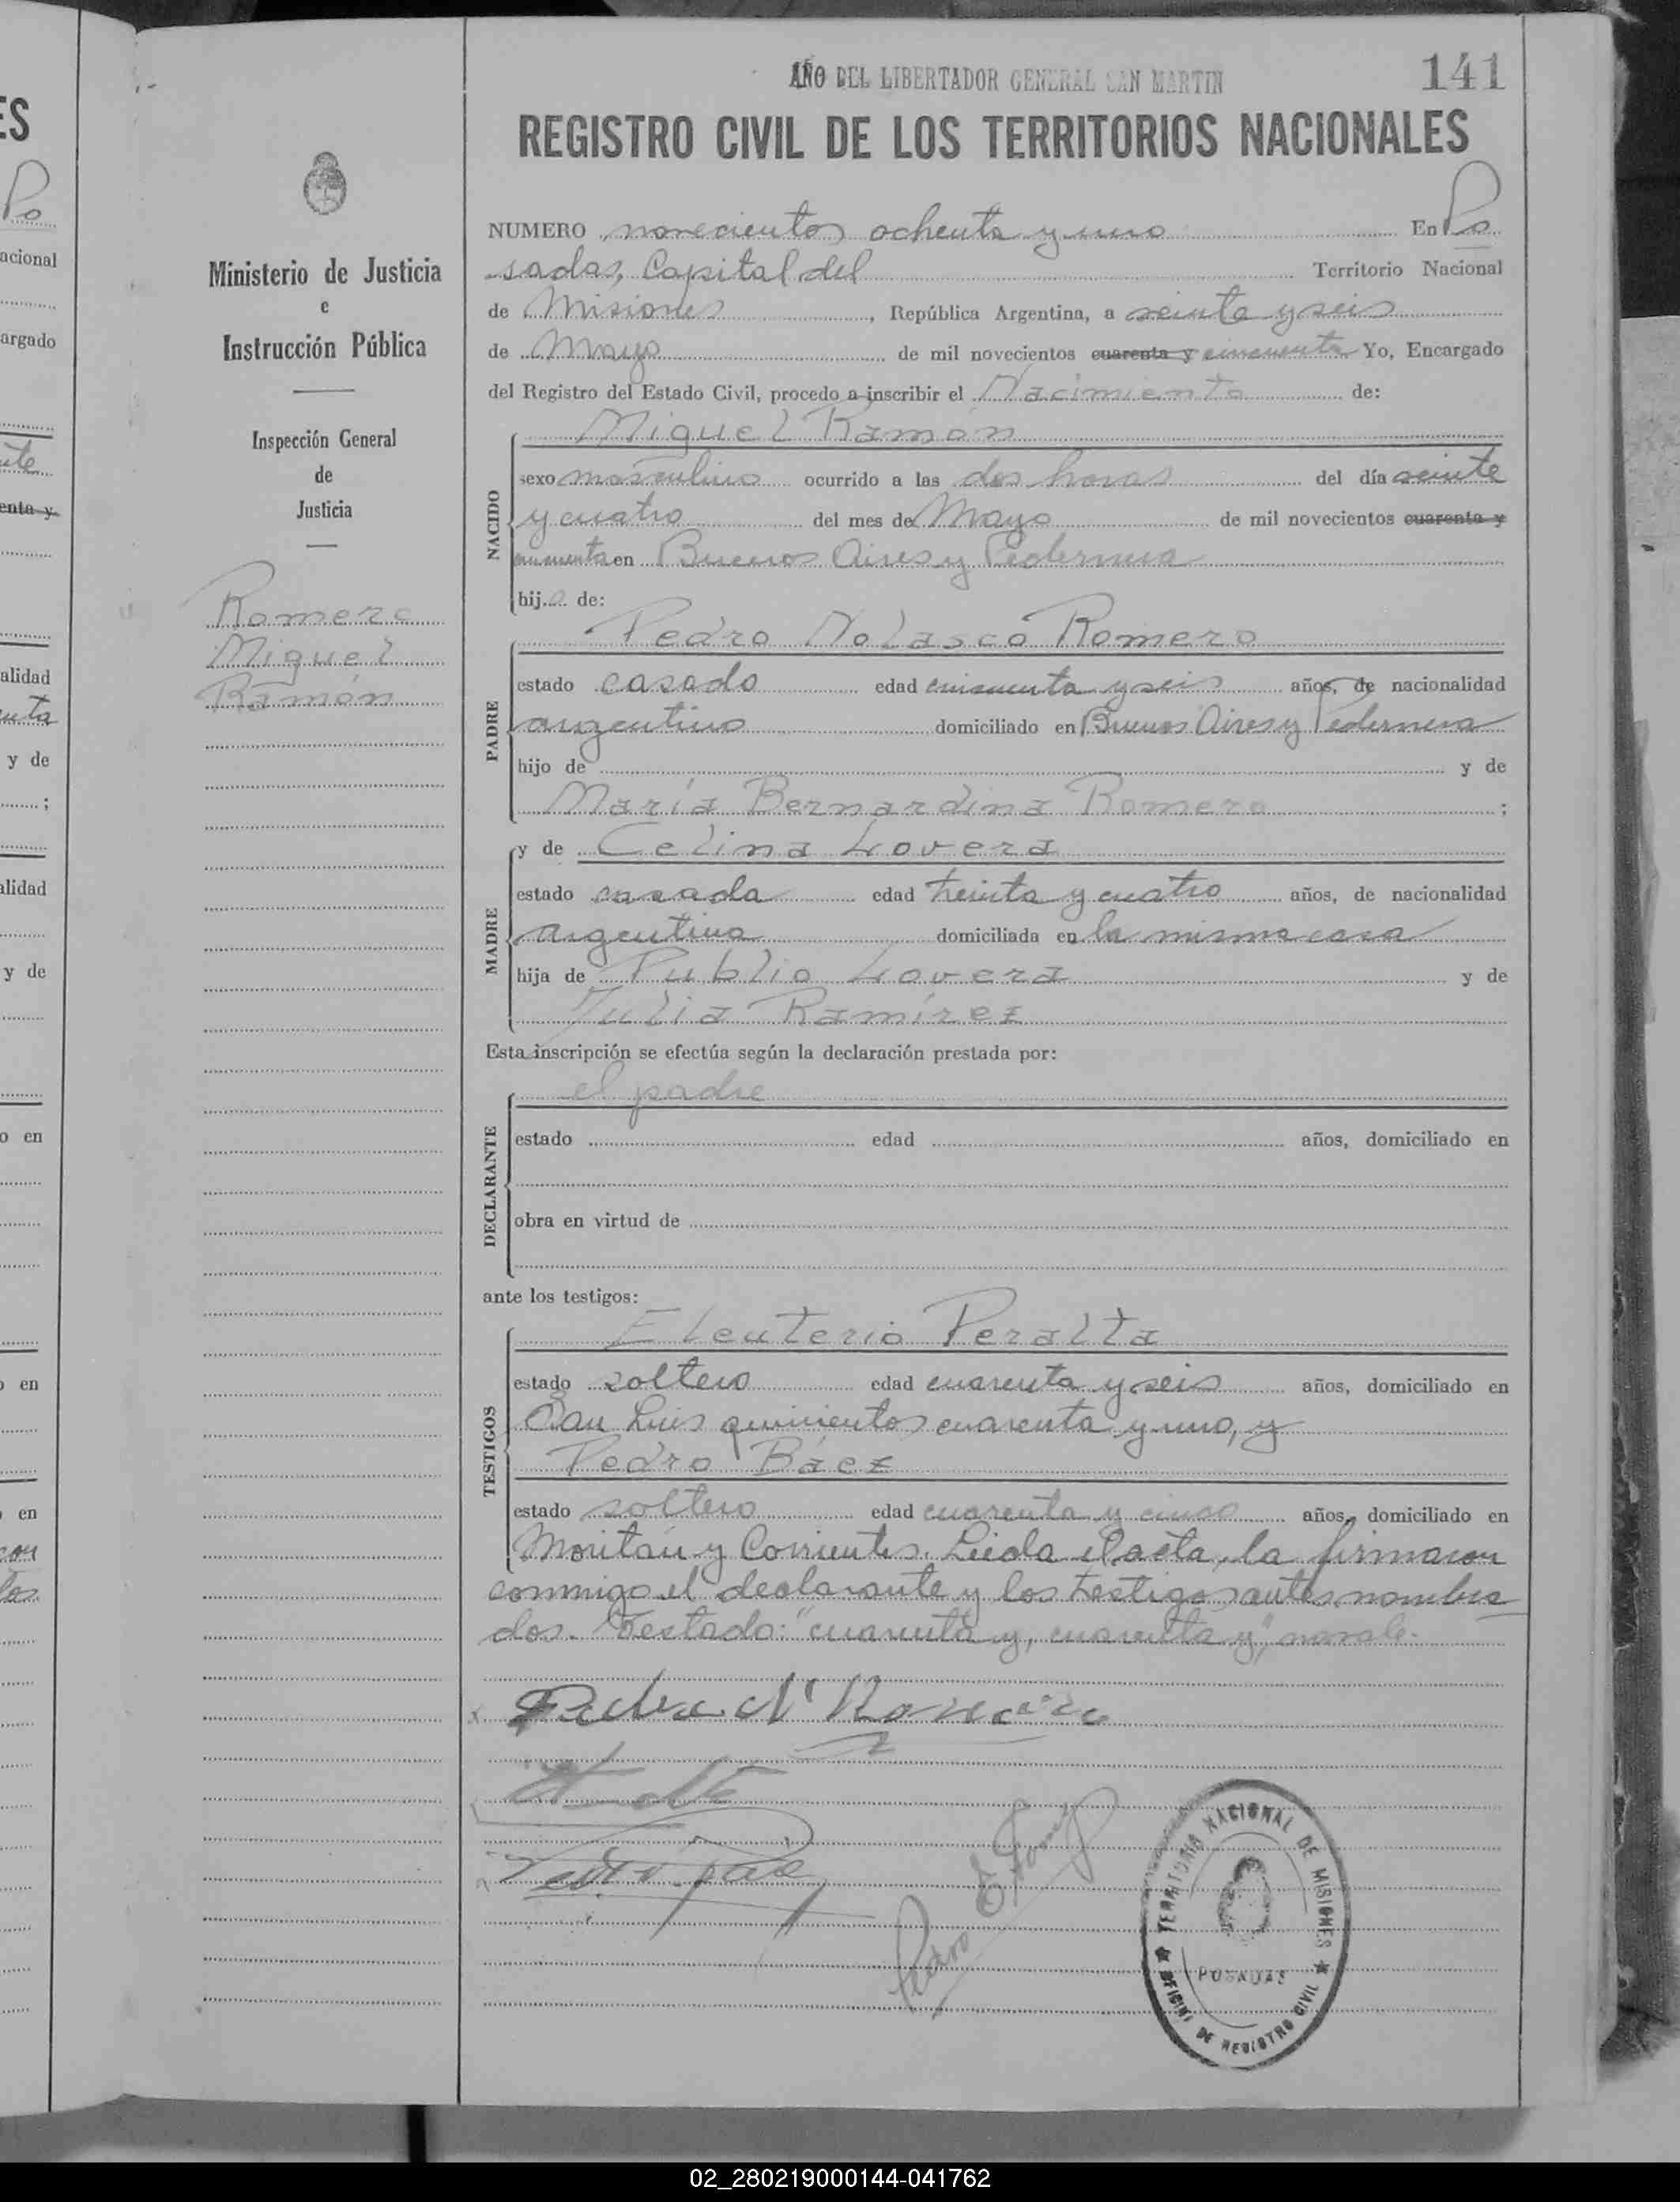 AÑO DEL LIBERTADOR GENERAL SAN MARTIN
141
REGISTRO CIVIL DE LOS TERRITORIOS NACIONALES
NUMERO novecientos ochenta y uno En Po
sadas, Capital del Territorio Nacional
de Misiones, República Argentina, a veinte y seis
de Mayo de mil novecientos cuarenta y cincuenta Yo, Encargado
del Registro del Estado Civil, procedo a inscribir el Nacimiento de:
NACIDO
Miguel Ramón
sexo masculino ocurrido a las dos horas del día veinte
y cuatro del mes de Mayo de mil novecientos cuarenta y
cincuenta en Buenos Aires y Pedernera
hijo de:
PADRE
Pedro Nolasco Romero
estado casado edad cincuenta y seis años, de nacionalidad
argentino domiciliado en Buenos Aires y Pedernera
hijo de y de
María Bernardina Romero ;
MADRE
y de Celina Lovera
estado casada edad treinta y cuatro años, de nacionalidad
argentina domiciliada en la misma casa
hija de Publio Lovera y de
Julia Ramírez
Esta inscripción se efectúa según la declaración prestada por:
DECLARANTE
el padre
estado edad años, domiciliado en
obra en virtud de
ante los testigos:
TESTIGOS
Eleuterio Peralta
estado soltero edad cuarenta y seis años, domiciliado en
San Luis quinientos cuarenta y uno, y
Pedro Báez
estado soltero edad cuarenta y cinco años, domiciliado en
y Corrientes. Leída el acta, la firmaron
conmigo el declarante y los testigos antes nombra
dos. Testado: "cuarenta y, cuarenta y", no vale.
Pedro N Romero
Pedro
TERRITORIO NACIONAL DE MISIONES
POSADAS
OFICINA DE REGISTRO CIVIL
Ministerio de Justicia
e
Instrucción Pública
Inspección General
de
Justicia
Romero
Miguel
Ramón
ES
Po
acional
argado
enta y
alidad
y de
;
alidad
y de
o en
o en
en
02_280219000144-041762